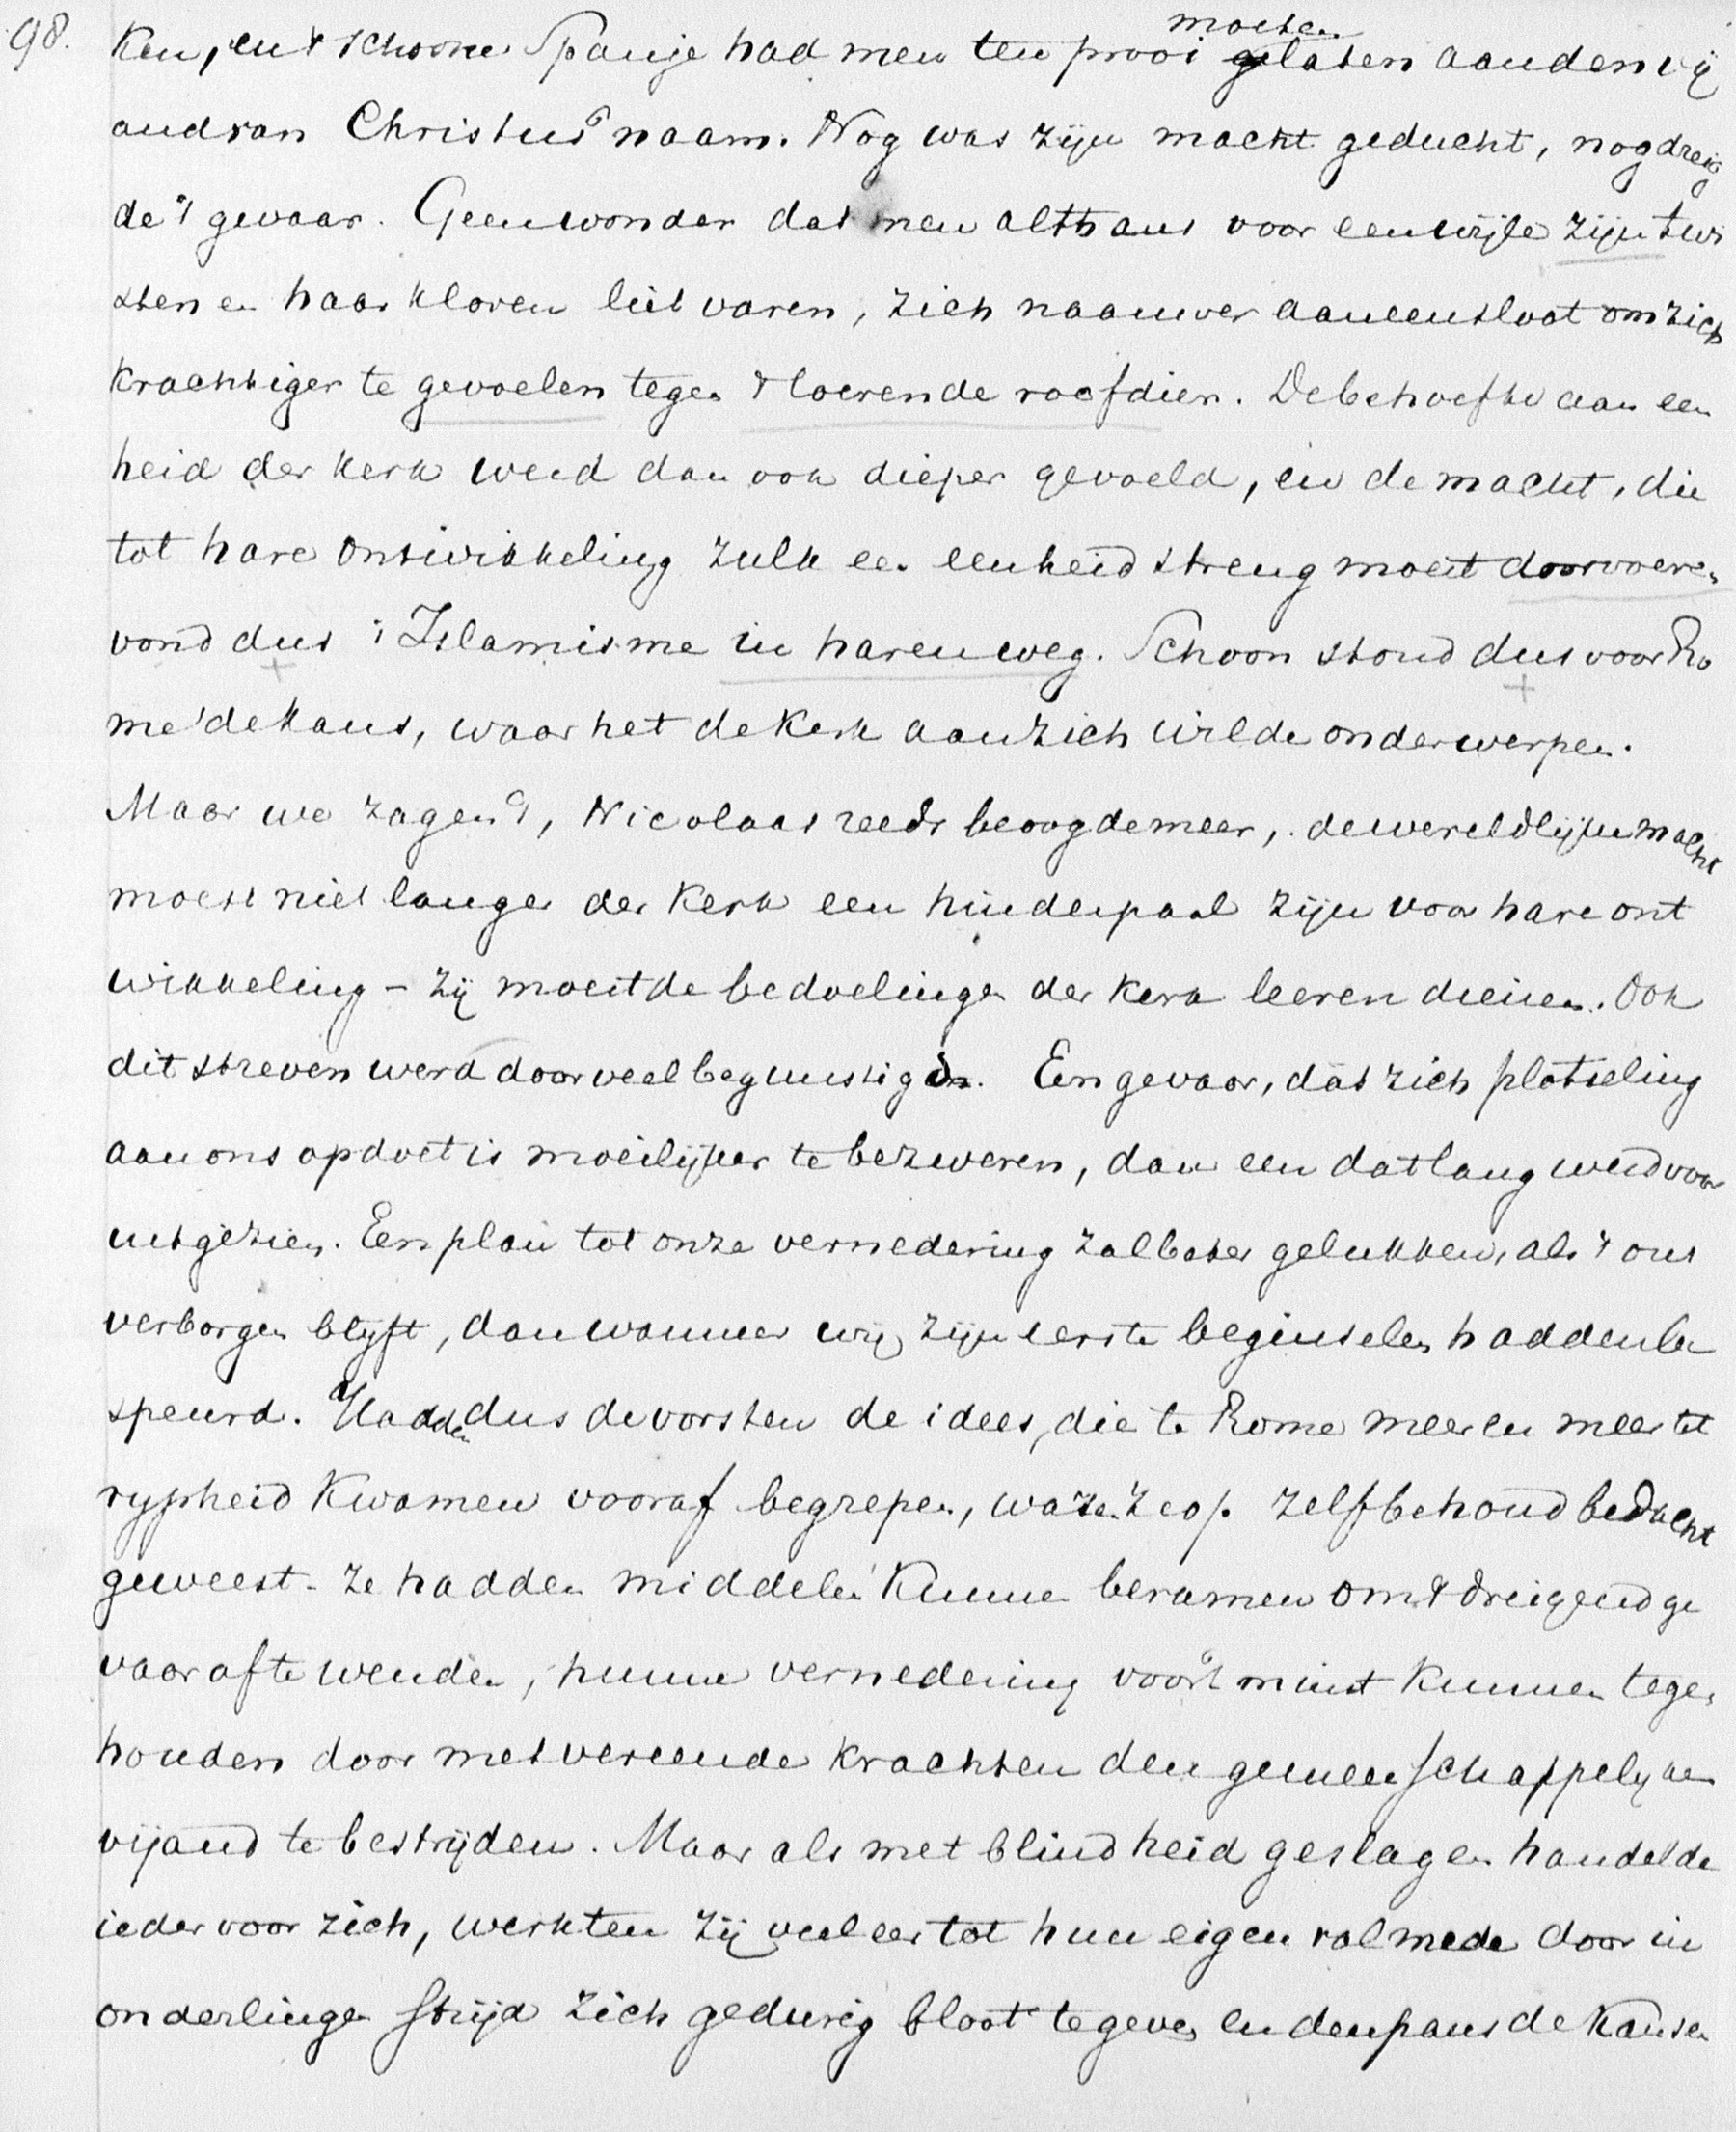 98.
moeten
ken, en 't schoone Spanje had men ten prooi gelaten aan den vij
and van Christus' naam. Nog was zijn macht geducht, nog dreig
de 't gevaar. Geen wonder dat men althans voor een wijle zijn twi
sten en haar kloven liet varen, zich naauwer aaneensloot om zich
krachtiger te gevoelen tegen 't loerende roofdier. De behoefte aan een
heid der kerk werd dan ook dieper gevoeld, en de macht, die
tot hare ontwikkeling zulk een eenheid streng moest doorvoeren
vond dus 't Islamisme in haren weg. Schoon stond dus voor Ro
me de kans, waar het de Kerk aan zich wilde onderwerpen.
Maar we zagen 't, Nicolaas reeds beoogde meer, de wereldlijke macht
moest niet langer der Kerk een hinderpaal zijn voor hare ont
wikkeling - zij moest de bedoelingen der Kerk leeren dienen. Ook
dit streven werd door veel begunstigd. Een gevaar, dat zich plotseling
aan ons opdoet is moeilijker te bezweren, dan een dat lang werd voor
uitgezien. Een plan tot onze vernedering zal beter gelukken, als 't ons
verborgen blijft, dan wanneer wij zijn eerste beginselen hadden be
speurd. Hadden dus de vorsten de idees, die te Rome meer en meer tot
rypheid kwamen vooraf begrepen, waren ze op zelfbehoud bedacht
geweest - ze hadden middelen kunnen beramen om 't dreigend ge
vaar af te wenden, hunne vernedering voor 't minst kunnen tegen
houden door met vereende krachten den gemeenschappelyken
vijand te bestrijden. Maar als met blindheid geslagen handelde
ieder voor zich, werkten zij veeleer tot hun eigen val mede door in
onderlingen strijd zich gedurig bloot te geven en den paus de kansen